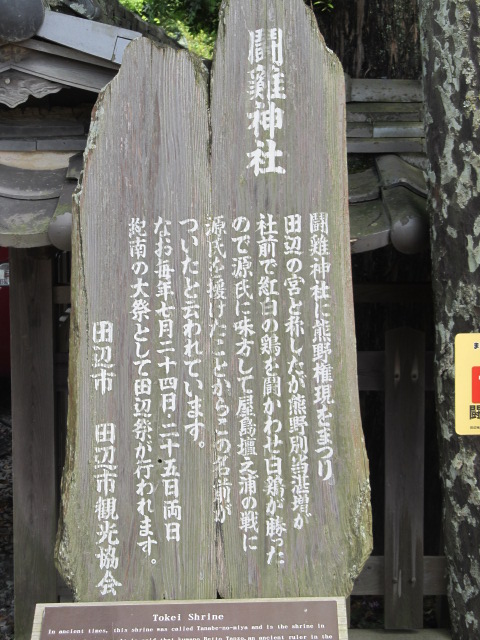 闘雞神社
闘雞神社に熊野権現をまつり
田辺の宮と称したが熊野別当湛増が
社前で紅白の鶏を闘かわせ白鶏が勝った
ので源氏に味方して屋島壇之浦の戦に
源氏を援けたことからこの名前が
ついたと云われています。
なお毎年七月二十四日・二十五日両日
紀南の大祭として田辺祭が行われます。
田辺市　田辺市観光協会
Tokei Shrine
In ancient times, this shrine was called Tanabe-no-miya and is the shrine in
ancient ruler in the
闘